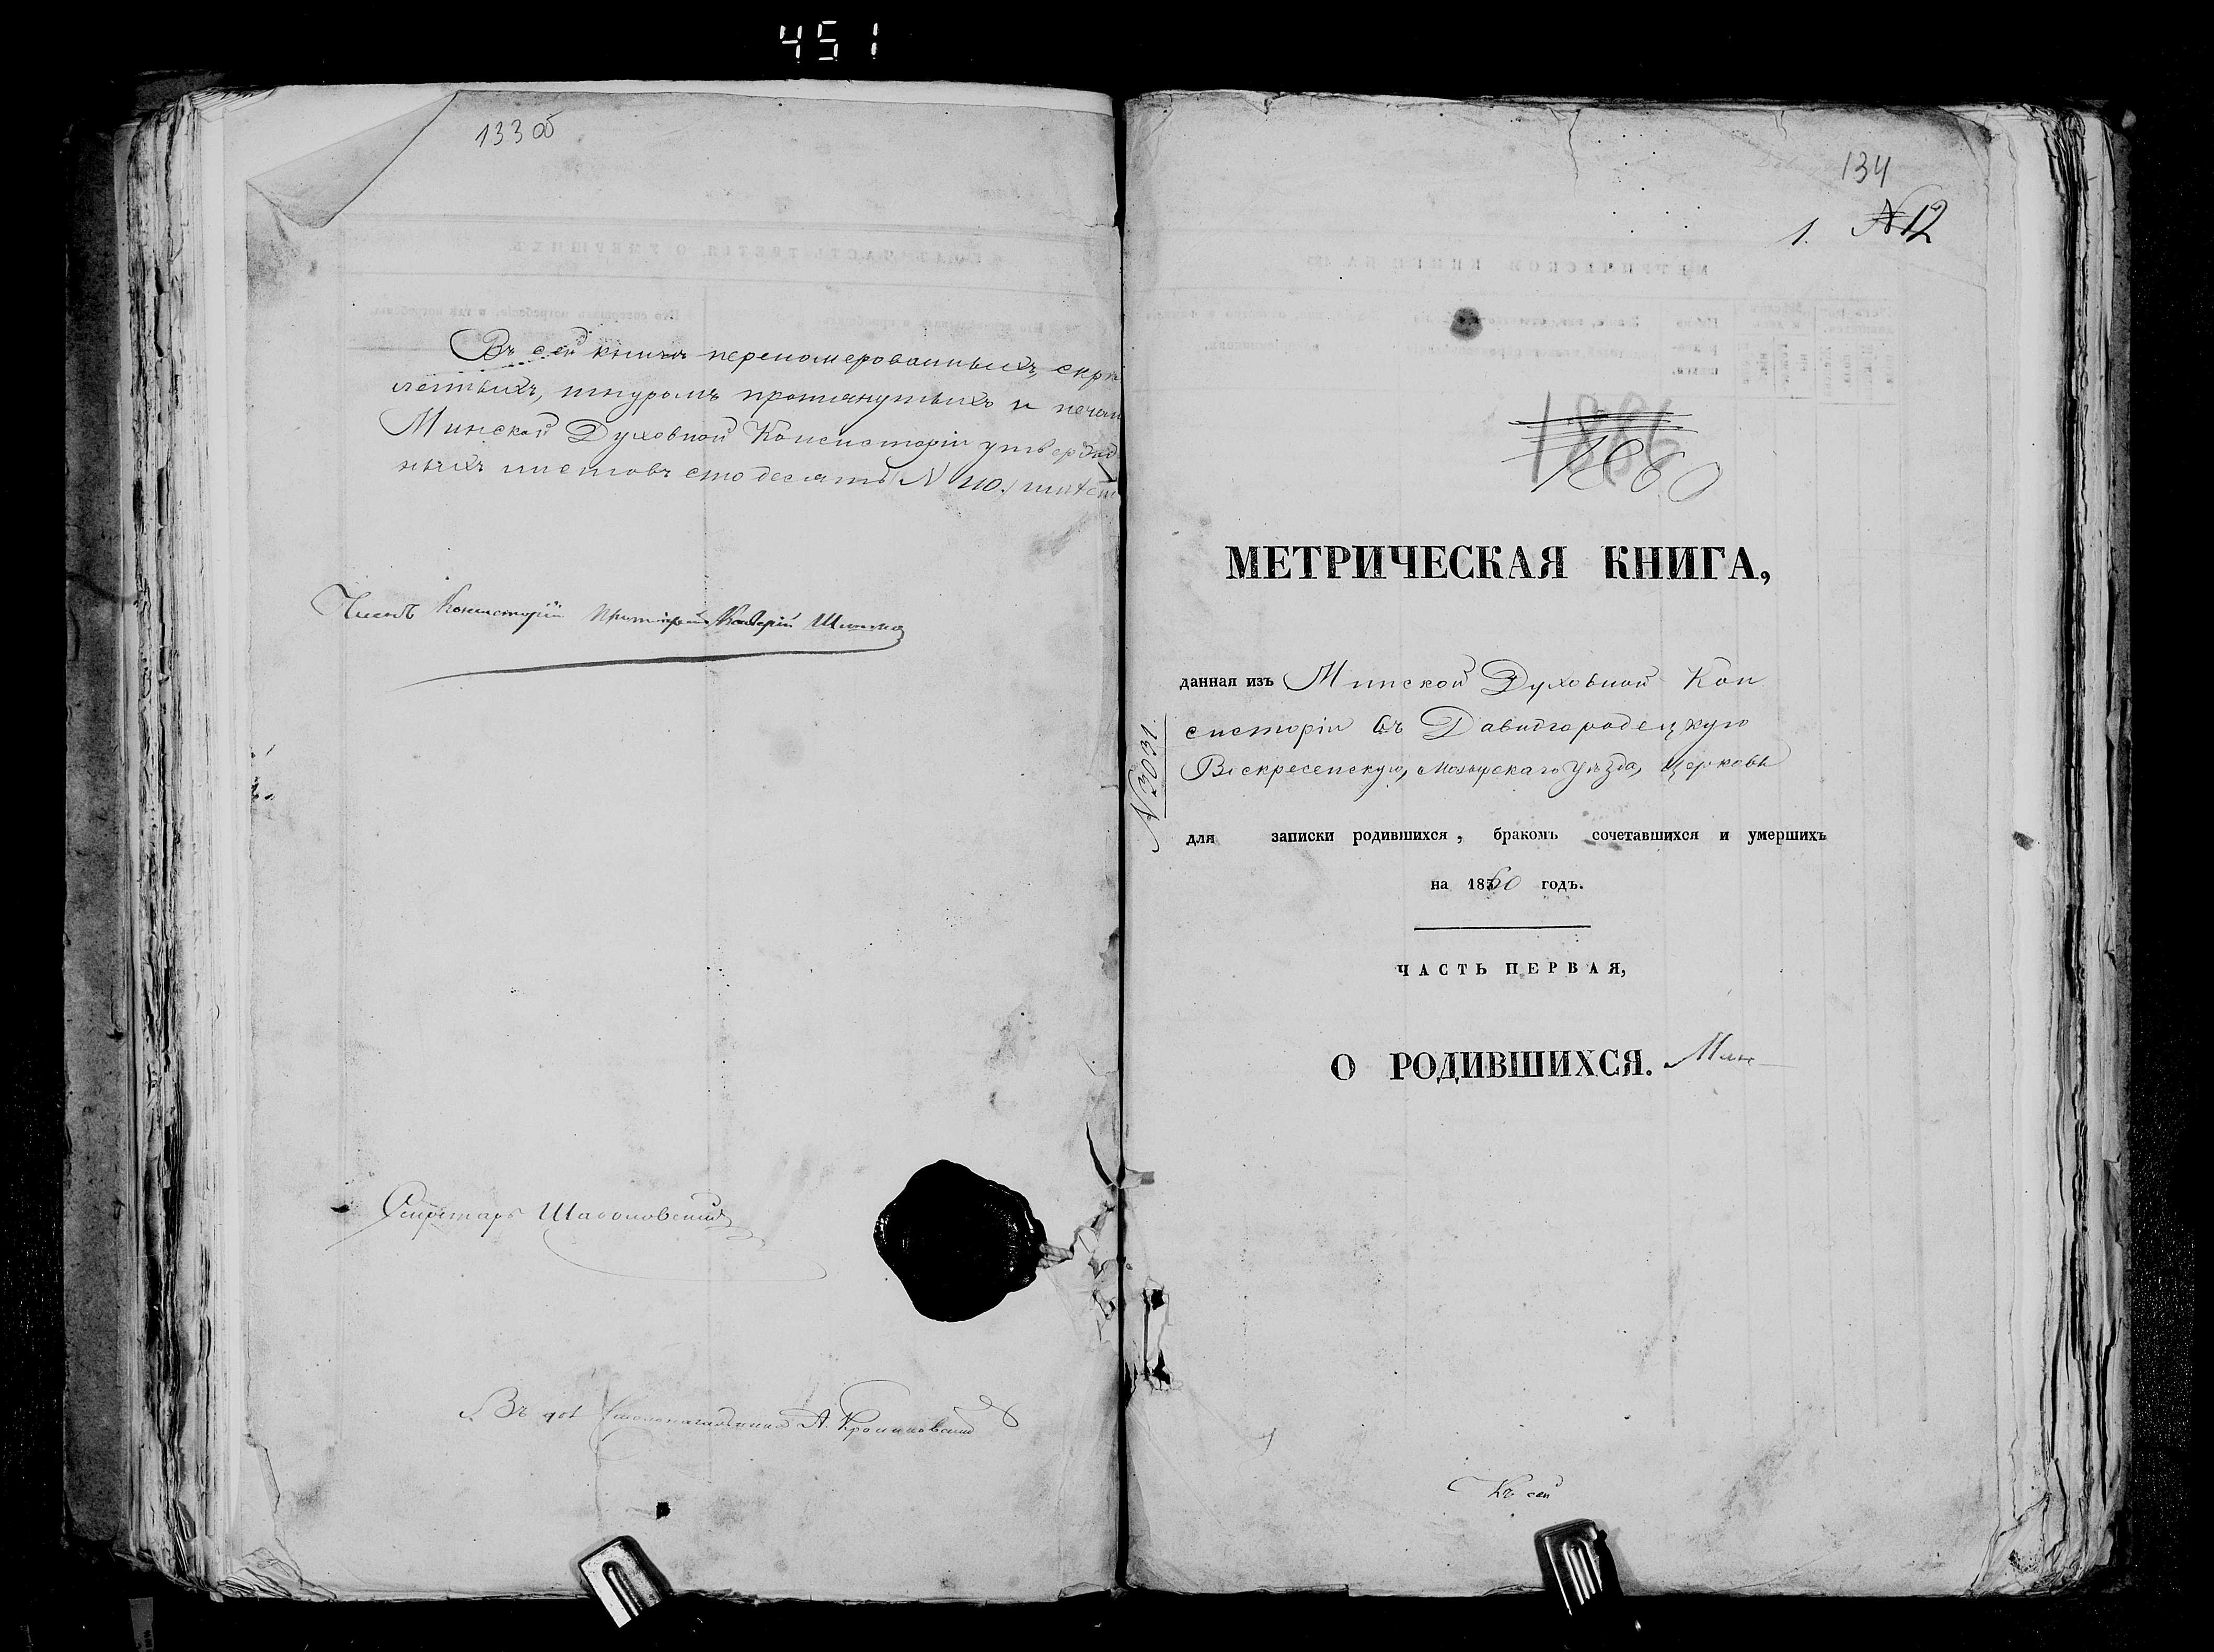 451
133 об
Въ сей книгѣ перономерованныхъ, скрѣ
леныхъ, шнуромъ протянутыхъ и печат
Минской Духовной Консисторіи утвержд
ныхъ листовъ сто десять N 110.
Членъ Консисторіи Протоіерей
Секретарь
Въ дол Столоначальника А.
134
1. №12
1886
1860
МЕТРИЧЕСКАЯ КНИГА,
данная изъ Минской Духовной Кон
систоріи въ Давидгородецкую
Воскресенскую, Мозырскаго уѣзда, церковь
N 3031
для записки родившихся, бракомъ сочетавшихся и умершихъ
на 1860 годъ.
ЧАСТЬ ПЕРВАЯ,
О РОДИВШИХСЯ.
Къ сей